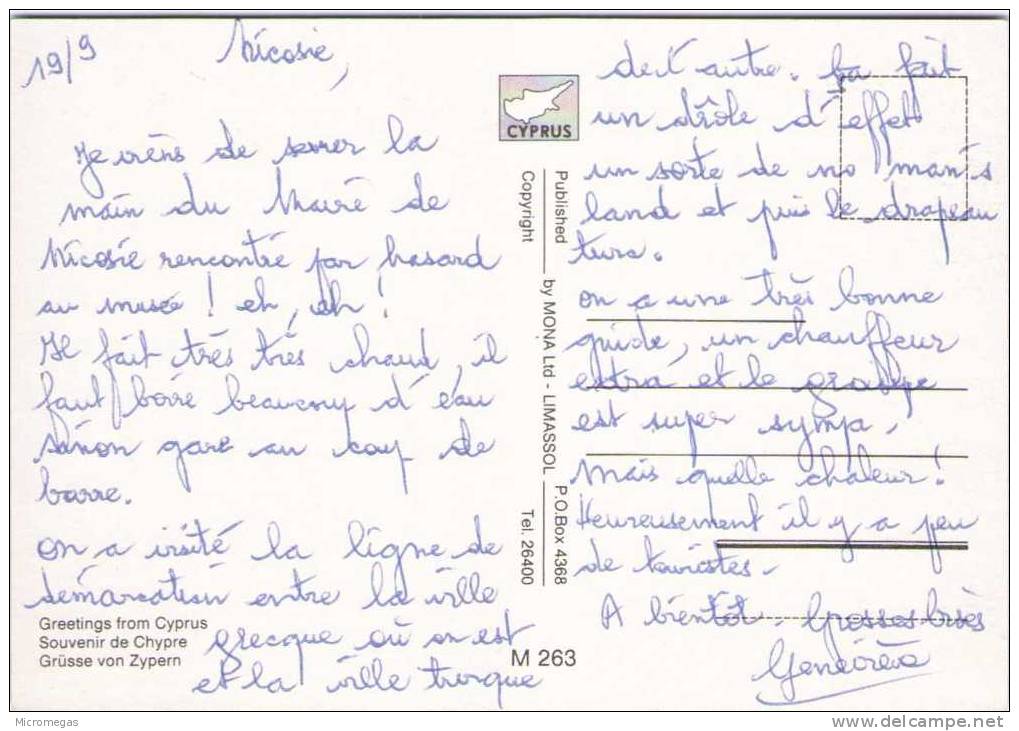 19/9 Nicosie,
Je viens de serrer la
main du Maire de
Nicosie rencontré par hasard
au musée ! eh, eh !
Il fait très très chaud, il
faut boire beaucoup d'eau
sinon gare au coup de
barre.
On a visité la ligne de
démarcation entre la ville
grecque où on est
et la ville turque
Greetings from Cyprus
Souvenir de Chypre
Grüsse von Zypern
CYPRUS
Published by MONA Ltd - LIMASSOL P.O.Box 4368
Copyright Tel. 26400
M 263
de l'autre. ça fait
un drôle d'effet
un sorte de no man's
land et puis le drapeau
turc.
On a une très bonne
guide, un chauffeur
extra et le groupe
est super sympa,
Mais quelle chaleur !
Heureusement il y a peu
de touristes.
A bientôt. Grosses bises
Geneviève
Micromegas
www.delcampe.net